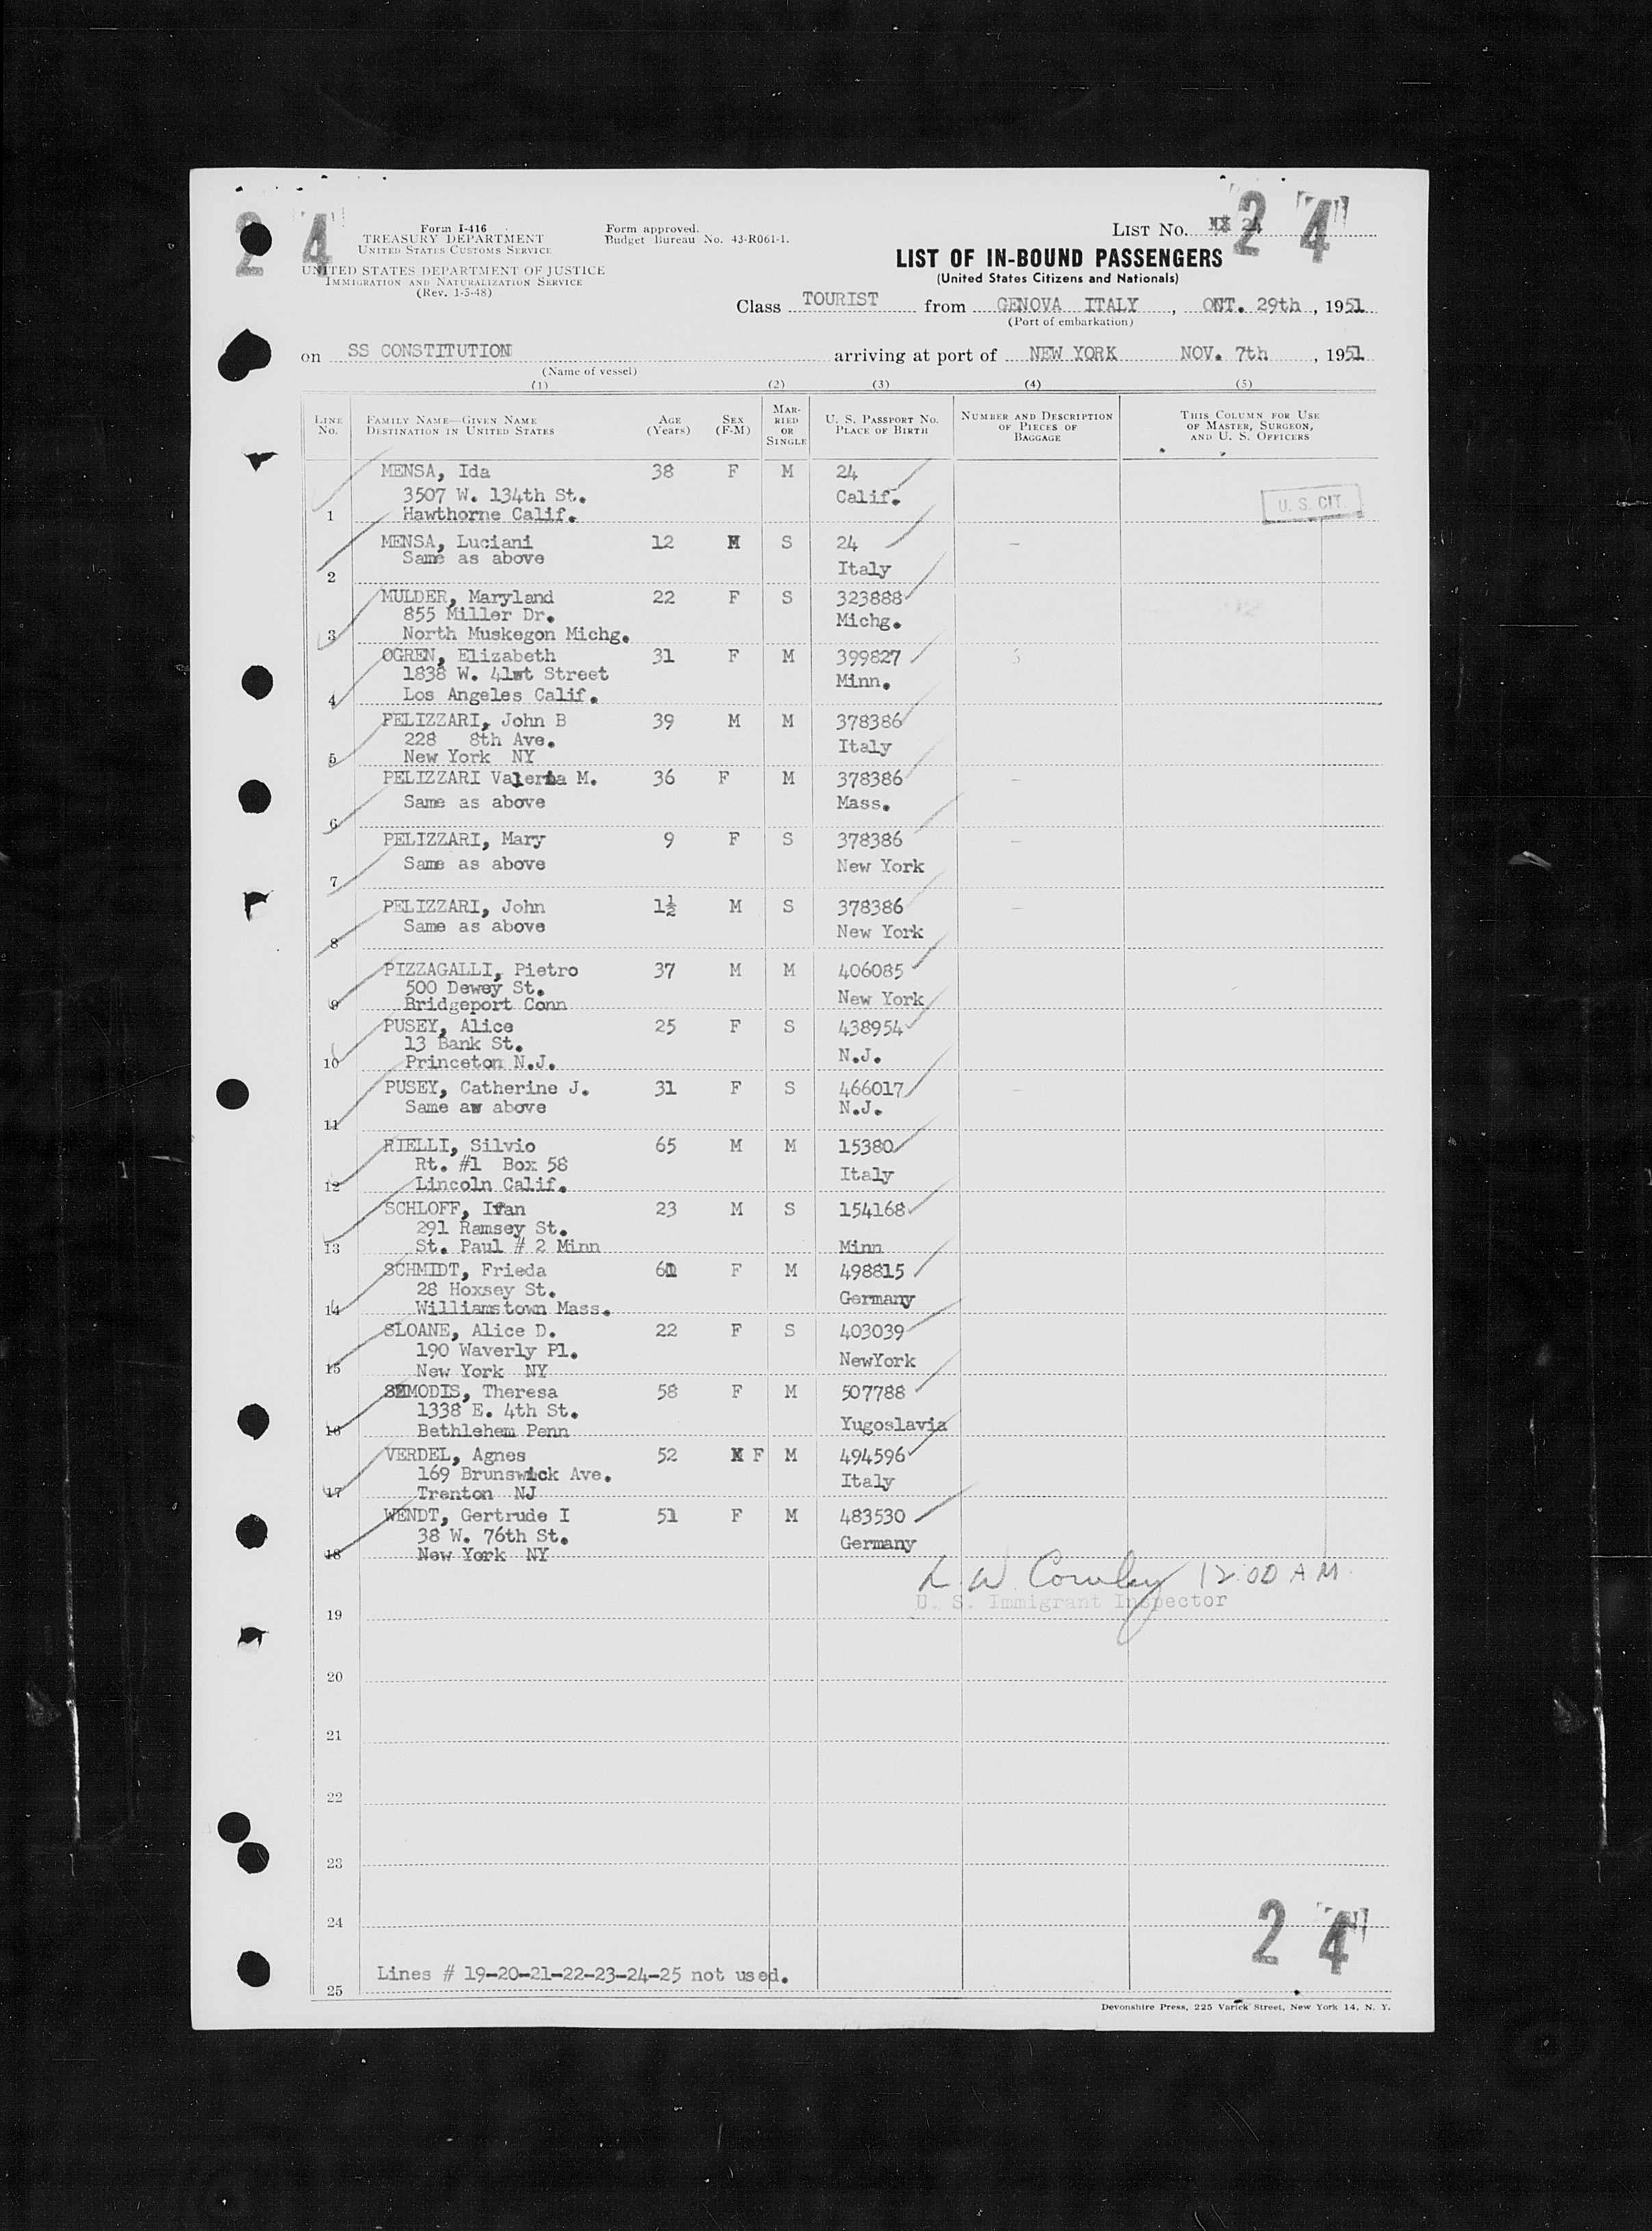 2 4
Form I-416
TREASURY DEPARTMENT
UNITED STATES CUSTOMS SERVICE
UNITED STATES DEPARTMENT OF JUSTICE
IMMIGRATION AND NATURALIZATION SERVICE
(Rev. 1-5-48)
Form approved.
Budget Bureau No. 43-R061-1.
LIST No. 24
2 4
LIST OF IN-BOUND PASSENGERS
(United States Citizens and Nationals)
Class TOURIST from GENOVA ITALY, OCT. 29th, 1951
(Port of embarkation)
on SS CONSTITUTION arriving at port of NEW YORK NOV. 7th, 1951
(Name of vessel)
(1) (2) (3) (4) (5)
LINE No.
FAMILY NAME—GIVEN NAME
DESTINATION IN UNITED STATES
AGE (Years)
SEX (F-M)
MARRIED OR SINGLE
U. S. PASSPORT No.
PLACE OF BIRTH
NUMBER AND DESCRIPTION OF PIECES OF BAGGAGE
THIS COLUMN FOR USE OF MASTER, SURGEON, AND U. S. OFFICERS
MENSA, Ida 38 F M 24
3507 W. 134th St. Calif.
1 Hawthorne Calif. U. S. CIT.
MENSA, Luciani 12 M S 24 -
Same as above Italy
2
MULDER, Maryland 22 F S 323888
855 Miller Dr. Michg.
3 North Muskegon Michg.
OGREN, Elizabeth 31 F M 399827
1838 W. 41st Street Minn.
4 Los Angeles Calif.
PELIZZARI, John B 39 M M 378386
228 8th Ave. Italy
5 New York NY
PELIZZARI Valeria M. 36 F M 378386 -
Same as above Mass.
6
PELIZZARI, Mary 9 F S 378386 -
Same as above New York
7
PELIZZARI, John 1½ M S 378386 -
Same as above New York
8
PIZZAGALLI, Pietro 37 M M 406085
500 Dewey St. New York
9 Bridgeport Conn
PUSEY, Alice 25 F S 438954
13 Bank St. N.J.
10 Princeton N.J.
PUSEY, Catherine J. 31 F S 466017 -
Same as above N.J.
11
RIELLI, Silvio 65 M M 15380
Rt. #1 Box 58 Italy
12 Lincoln Calif.
SCHLOFF, Ivan 23 M S 154168
291 Ramsey St.
13 St. Paul # 2 Minn Minn
SCHMIDT, Frieda 61 F M 498815
28 Hoxsey St. Germany
14 Williamstown Mass.
SLOANE, Alice D. 22 F S 403039
190 Waverly Pl. NewYork
15 New York NY
Theresa 58 F M 507788
1338 E. 4th St. Yugoslavia
16 Bethlehem Penn
VERDEL, Agnes 52 F M 494596
169 Brunswick Ave. Italy
17 Trenton NJ
WENDT, Gertrude I 51 F M 483530
38 W. 76th St. Germany
18 New York NY
L. W. Cowley 12:00 AM
U. S. Immigrant Inspector
19
20
21
22
23
24
2 4
Lines # 19-20-21-22-23-24-25 not used.
25
Devonshire Press, 225 Varick Street, New York 14, N. Y.